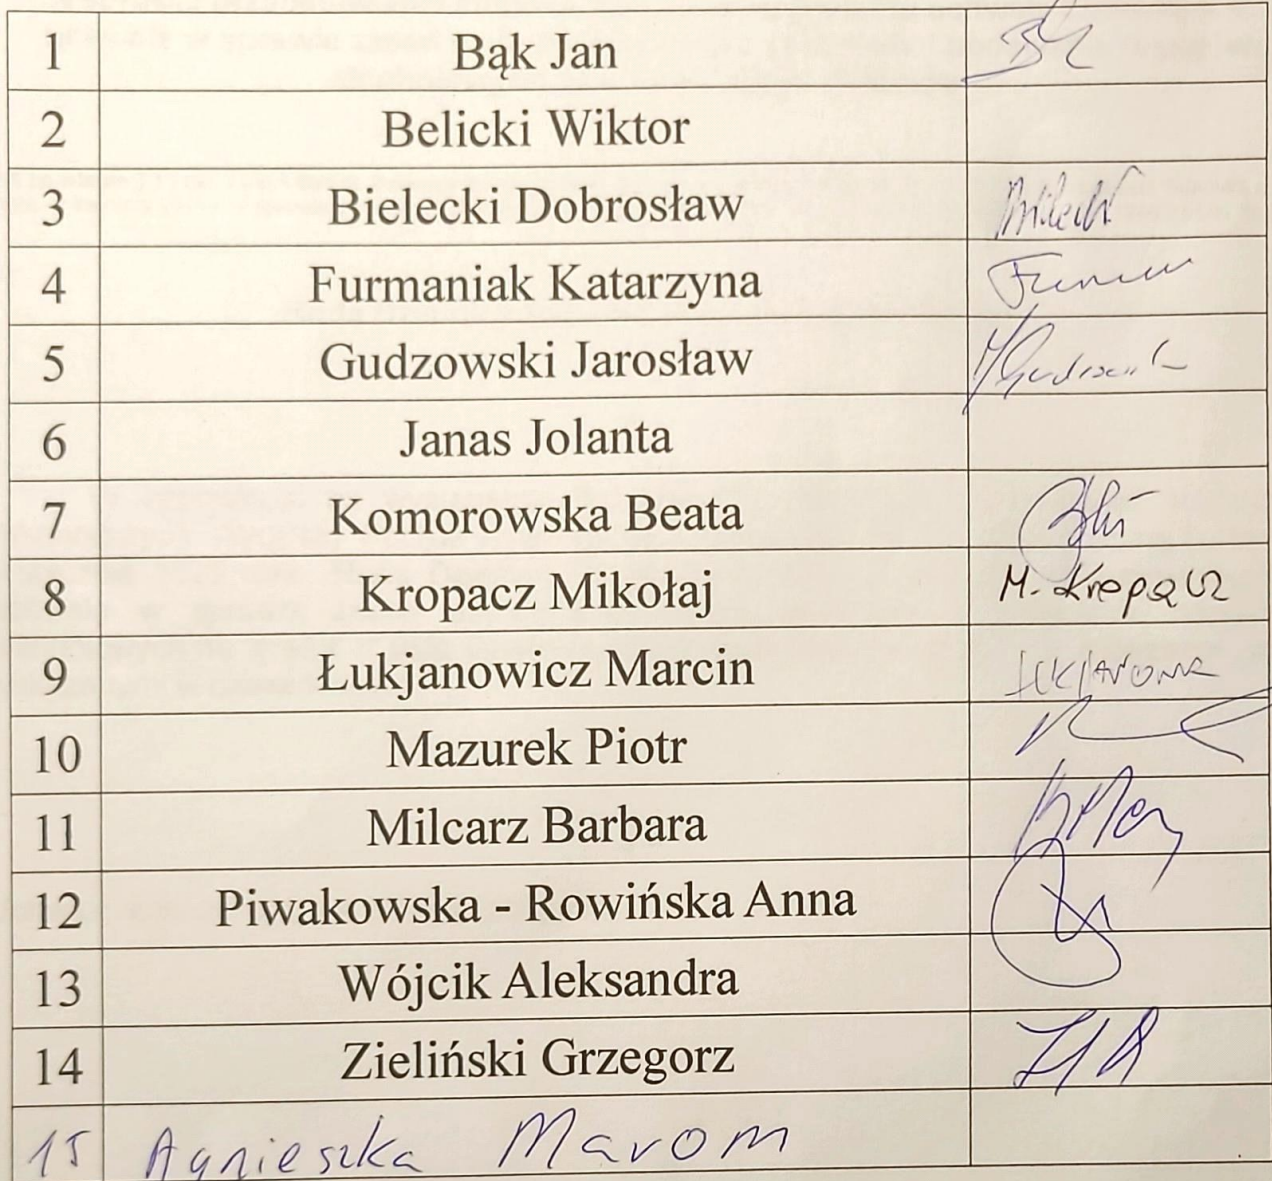 1 Bąk Jan
2 Belicki Wiktor
3 Bielecki Dobrosław
4 Furmaniak Katarzyna
5 Gudzowski Jarosław
6 Janas Jolanta
7 Komorowska Beata
8 Kropacz Mikołaj M. Kropacz
9 Łukjanowicz Marcin
10 Mazurek Piotr
11 Milcarz Barbara
12 Piwakowska - Rowińska Anna
13 Wójcik Aleksandra
14 Zieliński Grzegorz
15 Agnieszka Marom